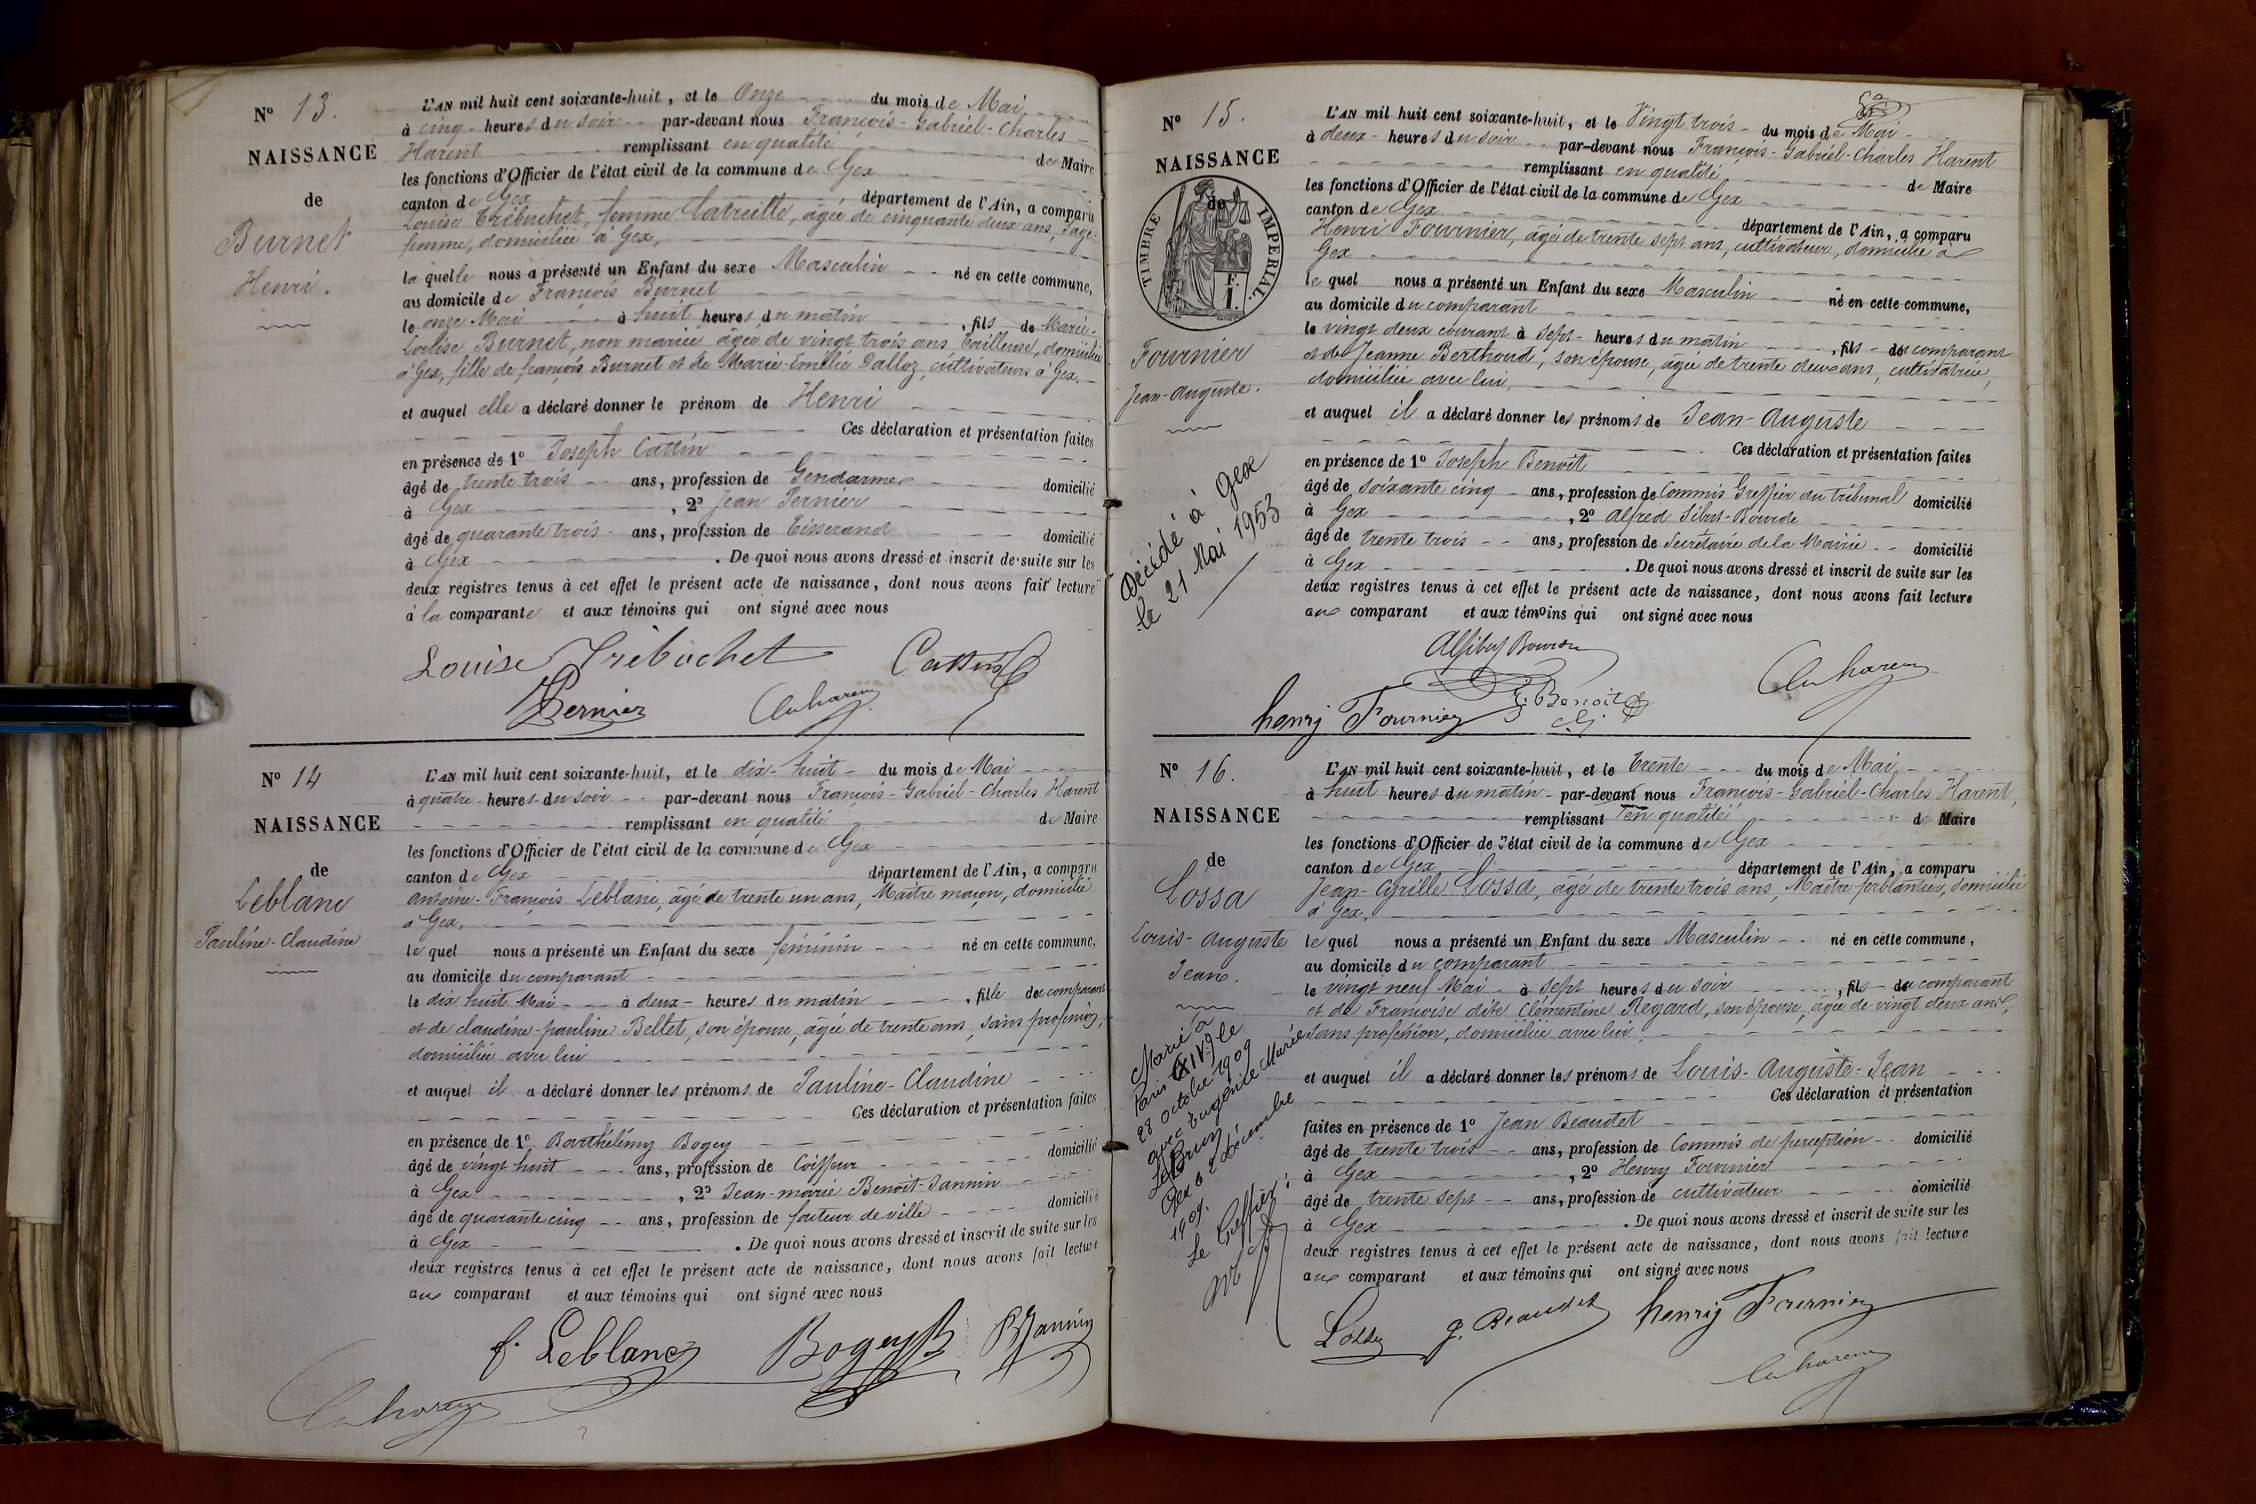 N° 13.
NAISSANCE
de
Burnet
Henri.
L'AN mil huit cent soixante-huit, et le Onze du mois de Mai
à cinq heures du soir par-devant nous François-Gabriel-Charles
Harent remplissant en qualité de Maire
les fonctions d'Officier de l'état civil de la commune de Gex
canton de Gex département de l'Ain, a comparu
Louise Trébuchet, femme Latreille, âgée de cinquante deux ans, Sage-
femme, domiciliée à Gex,
la quelle nous a présenté un Enfant du sexe Masculin né en cette commune,
au domicile de François Burnet
le onze Mai à huit heures du matin, fils de Marie-
Louise Burnet, non mariée âgée de vingt trois ans Tailleuse, domiciliée
à Gex, fille de françois Burnet et de Marie-Emélie Dalloz, cultivateurs à Gex,
et auquel elle a déclaré donner le prénom de Henri
Ces déclaration et présentation faites
en présence de 1° Joseph Cattin
âgé de trente trois ans, profession de Gendarme domicilié
à Gex, 2° Jean Pernier
âgé de quarante trois ans, profession de Tisserand domicilié
à Gex. De quoi nous avons dressé et inscrit de suite sur les
deux registres tenus à cet effet le présent acte de naissance, dont nous avons fait lecture
à la comparante et aux témoins qui ont signé avec nous
Louise Trébuchet Cattin
Pernier Ch harent
N° 14
NAISSANCE
de
Leblanc
Pauline-Claudine
L'AN mil huit cent soixante-huit, et le dix-huit du mois de Mai
à quatre heures du soir par-devant nous François-Gabriel-Charles Harent
remplissant en qualité de Maire
les fonctions d'Officier de l'état civil de la commune de Gex
canton de Gex département de l'Ain, a comparu
Antoine-François Leblanc, âgé de trente un ans, Maître maçon, domicilié
à Gex,
le quel nous a présenté un Enfant du sexe féminin né en cette commune,
au domicile du comparant
le dix huit Mai à deux heures du matin, fille du comparant
et de claudine-pauline Bellet, son épouse, âgée de trente ans, sans profession,
domiciliée avec lui
et auquel il a déclaré donner les prénoms de Pauline-Claudine
Ces déclaration et présentation faites
en présence de 1° Barthélémy Bogey
âgé de vingt huit ans, profession de Coiffeur domicilié
à Gex, 2° Jean-marie Benoit-Jannin
âgé de quarante cinq ans, profession de facteur de ville domicilié
à Gex. De quoi nous avons dressé et inscrit de suite sur les
deux registres tenus à cet effet le présent acte de naissance, dont nous avons fait lecture
au comparant et aux témoins qui ont signé avec nous
f. Leblanc Bogey B Jannin
Ch harent
N° 15.
NAISSANCE
de
TIMBRE IMPERIAL.
F. 1.
Fournier
Jean-Auguste.
Décédé à Gex
le 21 Mai 1953
L'AN mil huit cent soixante-huit, et le Vingt trois du mois de Mai
à deux heures du soir par-devant nous François-Gabriel-Charles Harent
remplissant en qualité de Maire
les fonctions d'Officier de l'état civil de la commune de Gex
canton de Gex département de l'Ain, a comparu
Henri Fournier, âgé de trente sept ans, cultivateur, domicilié à
Gex
le quel nous a présenté un Enfant du sexe Masculin né en cette commune,
au domicile du comparant
le vingt deux courant à sept heures du matin, fils du comparant
et de Jeanne Berthoud, son épouse, âgée de trente deux ans, cultivatrice,
domiciliée avec lui,
et auquel il a déclaré donner les prénoms de Jean-Auguste
Ces déclaration et présentation faites
en présence de 1° Joseph Benoit
âgé de soixante cinq ans, profession de Commis Greffier du tribunal domicilié
à Gex, 2° Alfred
âgé de trente trois ans, profession de Secrétaire de la Mairie domicilié
à Gex. De quoi nous avons dressé et inscrit de suite sur les
deux registres tenus à cet effet le présent acte de naissance, dont nous avons fait lecture
au comparant et aux témoins qui ont signé avec nous
henry Fournier Benoit Ch harent
N° 16.
NAISSANCE
de
Lossa
Louis-Auguste
Jean.
Marié à
Paris XIVe le
28 octobre 1909
avec Eugénie Marie
LeBrun
Gex le 2 décembre
1909.
Le Greffier:
L'AN mil huit cent soixante-huit, et le Trente du mois de Mai
à huit heures du matin par-devant nous François-Gabriel-Charles Harent,
remplissant en qualité de Maire
les fonctions d'Officier de l'état civil de la commune de Gex
canton de Gex département de l'Ain, a comparu
Jean-Cyrille Lossa, âgé de trente trois ans, Maître ferblantier, domicilié
à Gex,
le quel nous a présenté un Enfant du sexe Masculin né en cette commune,
au domicile du comparant
le vingt neuf Mai à sept heures du soir, fils du comparant
et de Françoise dite Clémentine Regard, son épouse, âgée de vingt deux ans,
sans profession, domiciliée avec lui,
et auquel il a déclaré donner les prénoms de Louis-Auguste-Jean
Ces déclaration et présentation
faites en présence de 1° Jean Beaudet
âgé de trente trois ans, profession de Commis de perception domicilié
à Gex, 2° Henry Fournier
âgé de trente sept ans, profession de cultivateur domicilié
à Gex. De quoi nous avons dressé et inscrit de suite sur les
deux registres tenus à cet effet le présent acte de naissance, dont nous avons fait lecture
au comparant et aux témoins qui ont signé avec nous
Lossa J. Beaudet henry Fournier
Ch harent